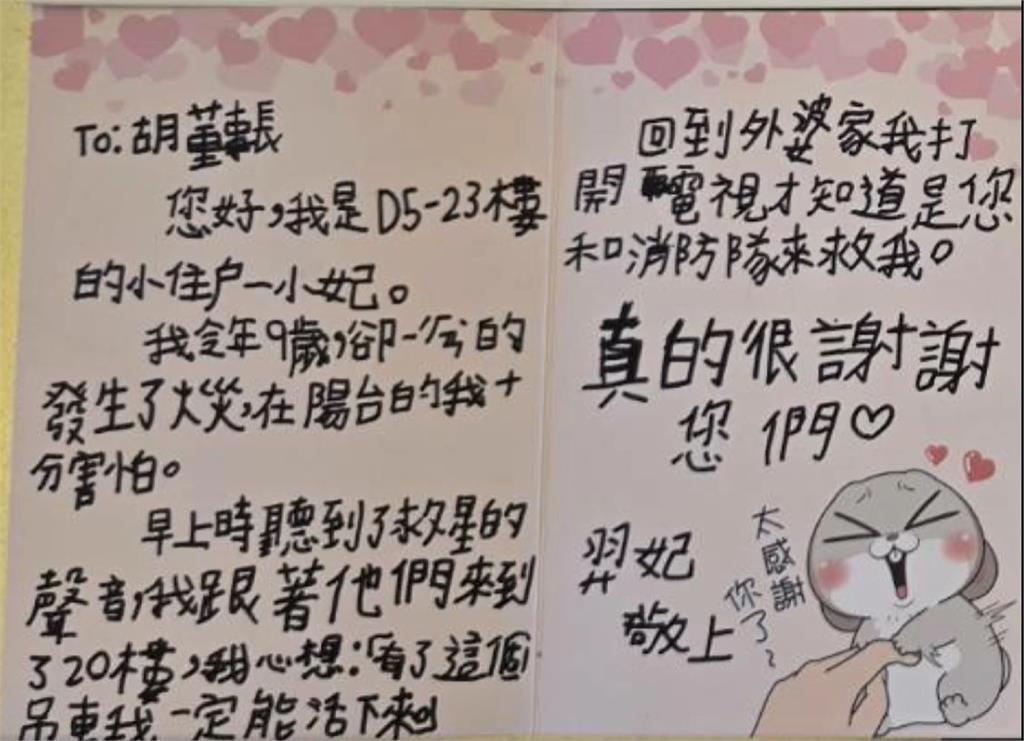 To:胡董事長
您好,我是D5-23樓
的小住戶一小妃。
我今年9歲,卻一
的
發生了火災,在陽台的我十
分害怕。
早上時聽到了救星的
聲音,我跟著他們來到
了20樓,我心想:「有了這個
吊車我一定能活下來」
回到外婆家我打
開電視才知道是您
和消防隊來救我。
真的很謝謝
您們♡
羿妃
敬上
太感謝
你了~